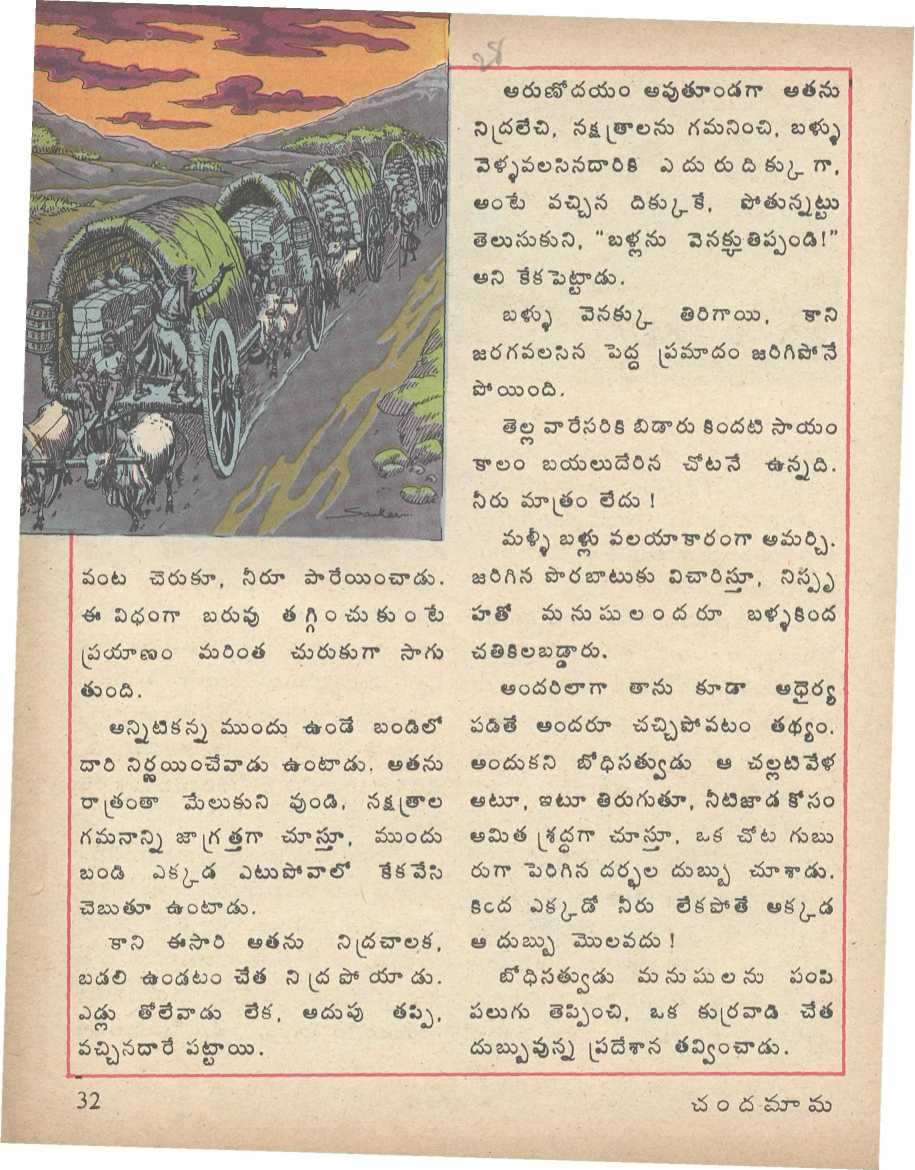 వంట చెరుకూ, నీరూ పారేయించాడు.
ఈ విధంగా బరువు తగ్గించుకుంటే
ప్రయాణం మరింత చురుకుగా సాగు
తుంది.
అన్నిటికన్న ముందు ఉండే బండిలో
దారి నిర్ణయించేవాడు ఉంటాడు. అతను
రాత్రంతా మేలుకుని వుండి, నక్షత్రాల
గమనాన్ని జాగ్రత్తగా చూస్తూ, ముందు
బండి ఎక్కడ ఎటుపోవాలో కేకవేసి
చెబుతూ ఉంటాడు.
కాని ఈసారి అతను నిద్రచాలక,
బడలి ఉండటం చేత నిద్రపోయాడు.
ఎడ్లు తోలేవాడు లేక, అదుపు తప్పి,
వచ్చినదారే పట్టాయి.
అరుణోదయం అవుతూండగా అతను
నిద్రలేచి, నక్షత్రాలను గమనించి, బళ్ళు
వెళ్ళవలసినదారికి ఎదురుదిక్కుగా,
అంటే వచ్చిన దిక్కుకే, పోతున్నట్టు
తెలుసుకుని, “బళ్లను వెనక్కుతిప్పండి!”
అని కేకపెట్టాడు.
బళ్ళు వెనక్కు తిరిగాయి, కాని
జరగవలసిన పెద్ద ప్రమాదం జరిగిపోనే
పోయింది.
తెల్లవారేసరికి బిడారు కిందటి సాయం
కాలం బయలుదేరిన చోటనే ఉన్నది.
నీరు మాత్రం లేదు !
మళ్ళీ బళ్లు వలయాకారంగా అమర్చి.
జరిగిన పొరబాటుకు విచారిస్తూ, నిస్పృ
హతో మనుషులందరూ బళ్ళకింద
చతికిలబడ్డారు.
అందరిలాగా తాను కూడా అధైర్య
పడితే అందరూ చచ్చిపోవటం తథ్యం.
అందుకని బోధిసత్వుడు ఆ చల్లటివేళ
అటూ, ఇటూ తిరుగుతూ, నీటిజాడ కోసం
అమిత శ్రద్ధగా చూస్తూ, ఒక చోట గుబు
రుగా పెరిగిన దర్భల దుబ్బు చూశాడు.
కింద ఎక్కడో నీరు లేకపోతే అక్కడ
ఆ దుబ్బు మొలవదు !
బోధిసత్వుడు మనుషులను పంపి
పలుగు తెప్పించి, ఒక కుర్రవాడి చేత
దుబ్బువున్న ప్రదేశాన తవ్వించాడు.
32
చందమామ